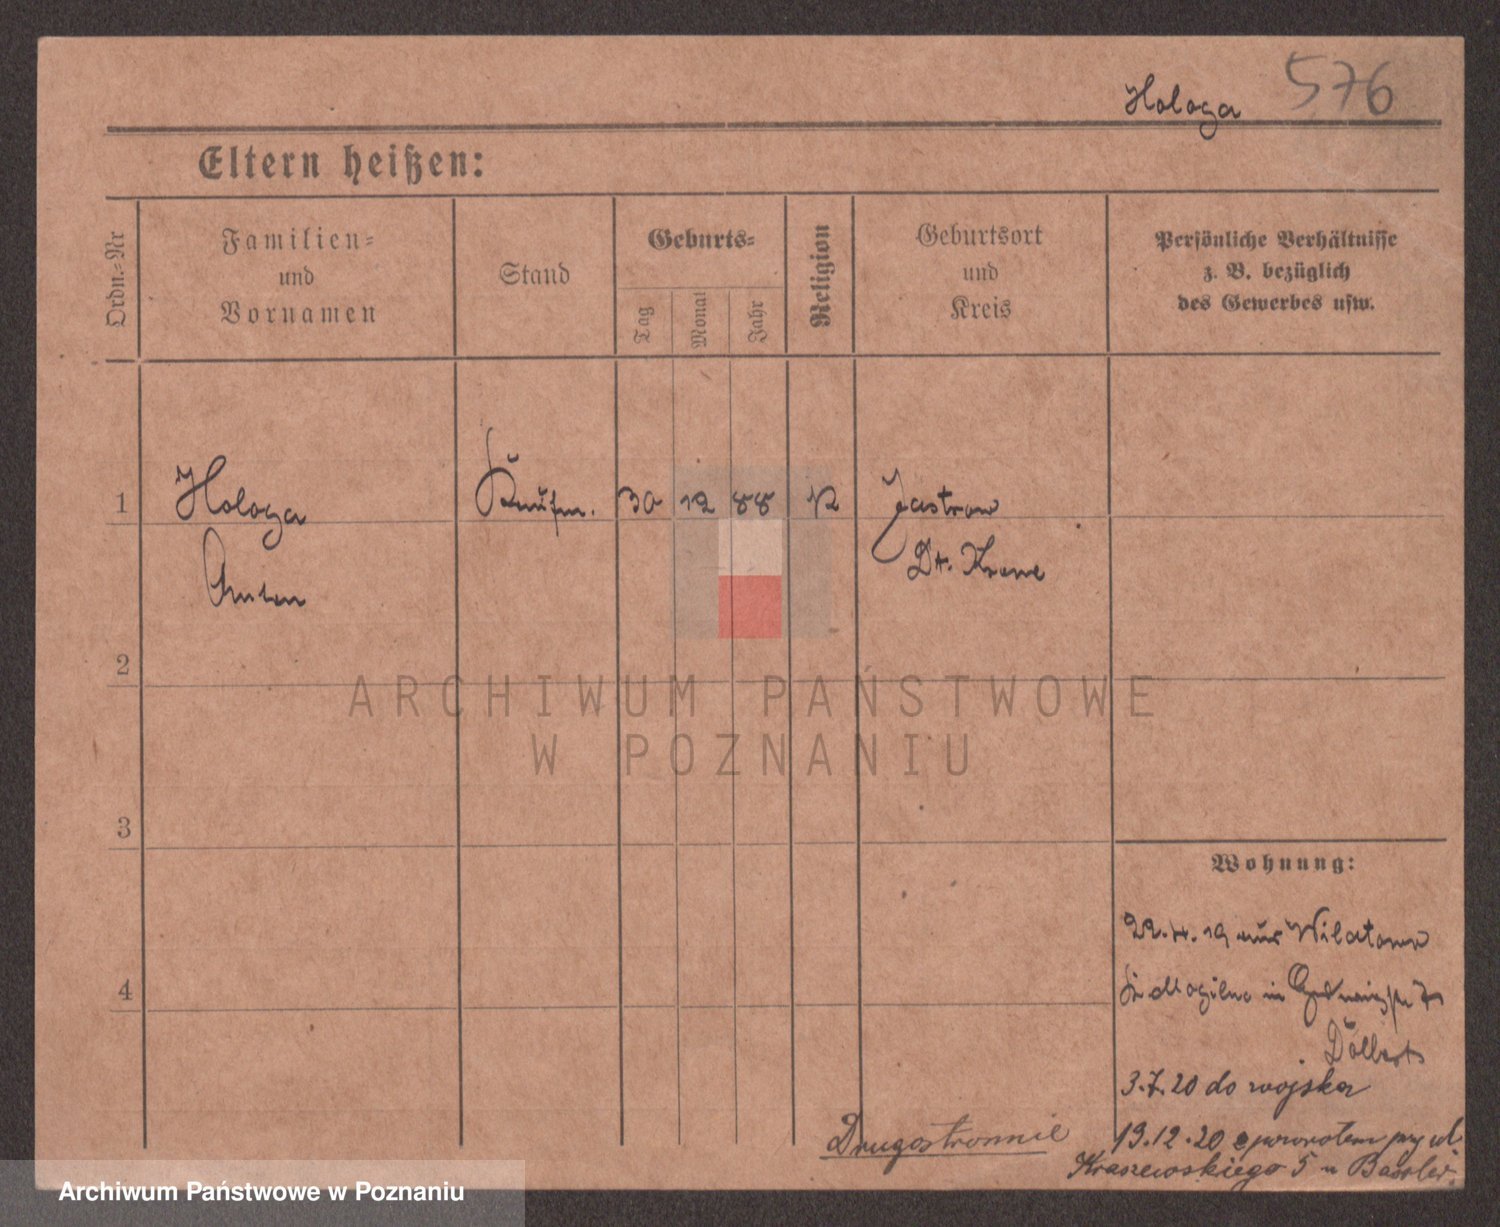 Hologa 576
Eltern heißen:
Ordn.-Nr
Familien-
und
Vornamen
Stand
Geburts-
Tag
Monat
Jahr
Religion
Geburtsort
und
Kreis
Persönliche Verhältnisse
z. B. bezüglich
des Gewerbes usw.
1 Hologa Kaufm. 30 12 88 K Jastrow
Anton Dt. Krone
2
3
4
ARCHIWUM PAŃSTWOWE
W POZNANIU
Wohnung:
22.4.19 aus Wilatowo
Kr Mogilno in
3.7.20 do wojska
Drugostronnie
19.12.20 z powrotem przy ul.
Kraszewskiego 5 u
Archiwum Państwowe w Poznaniu